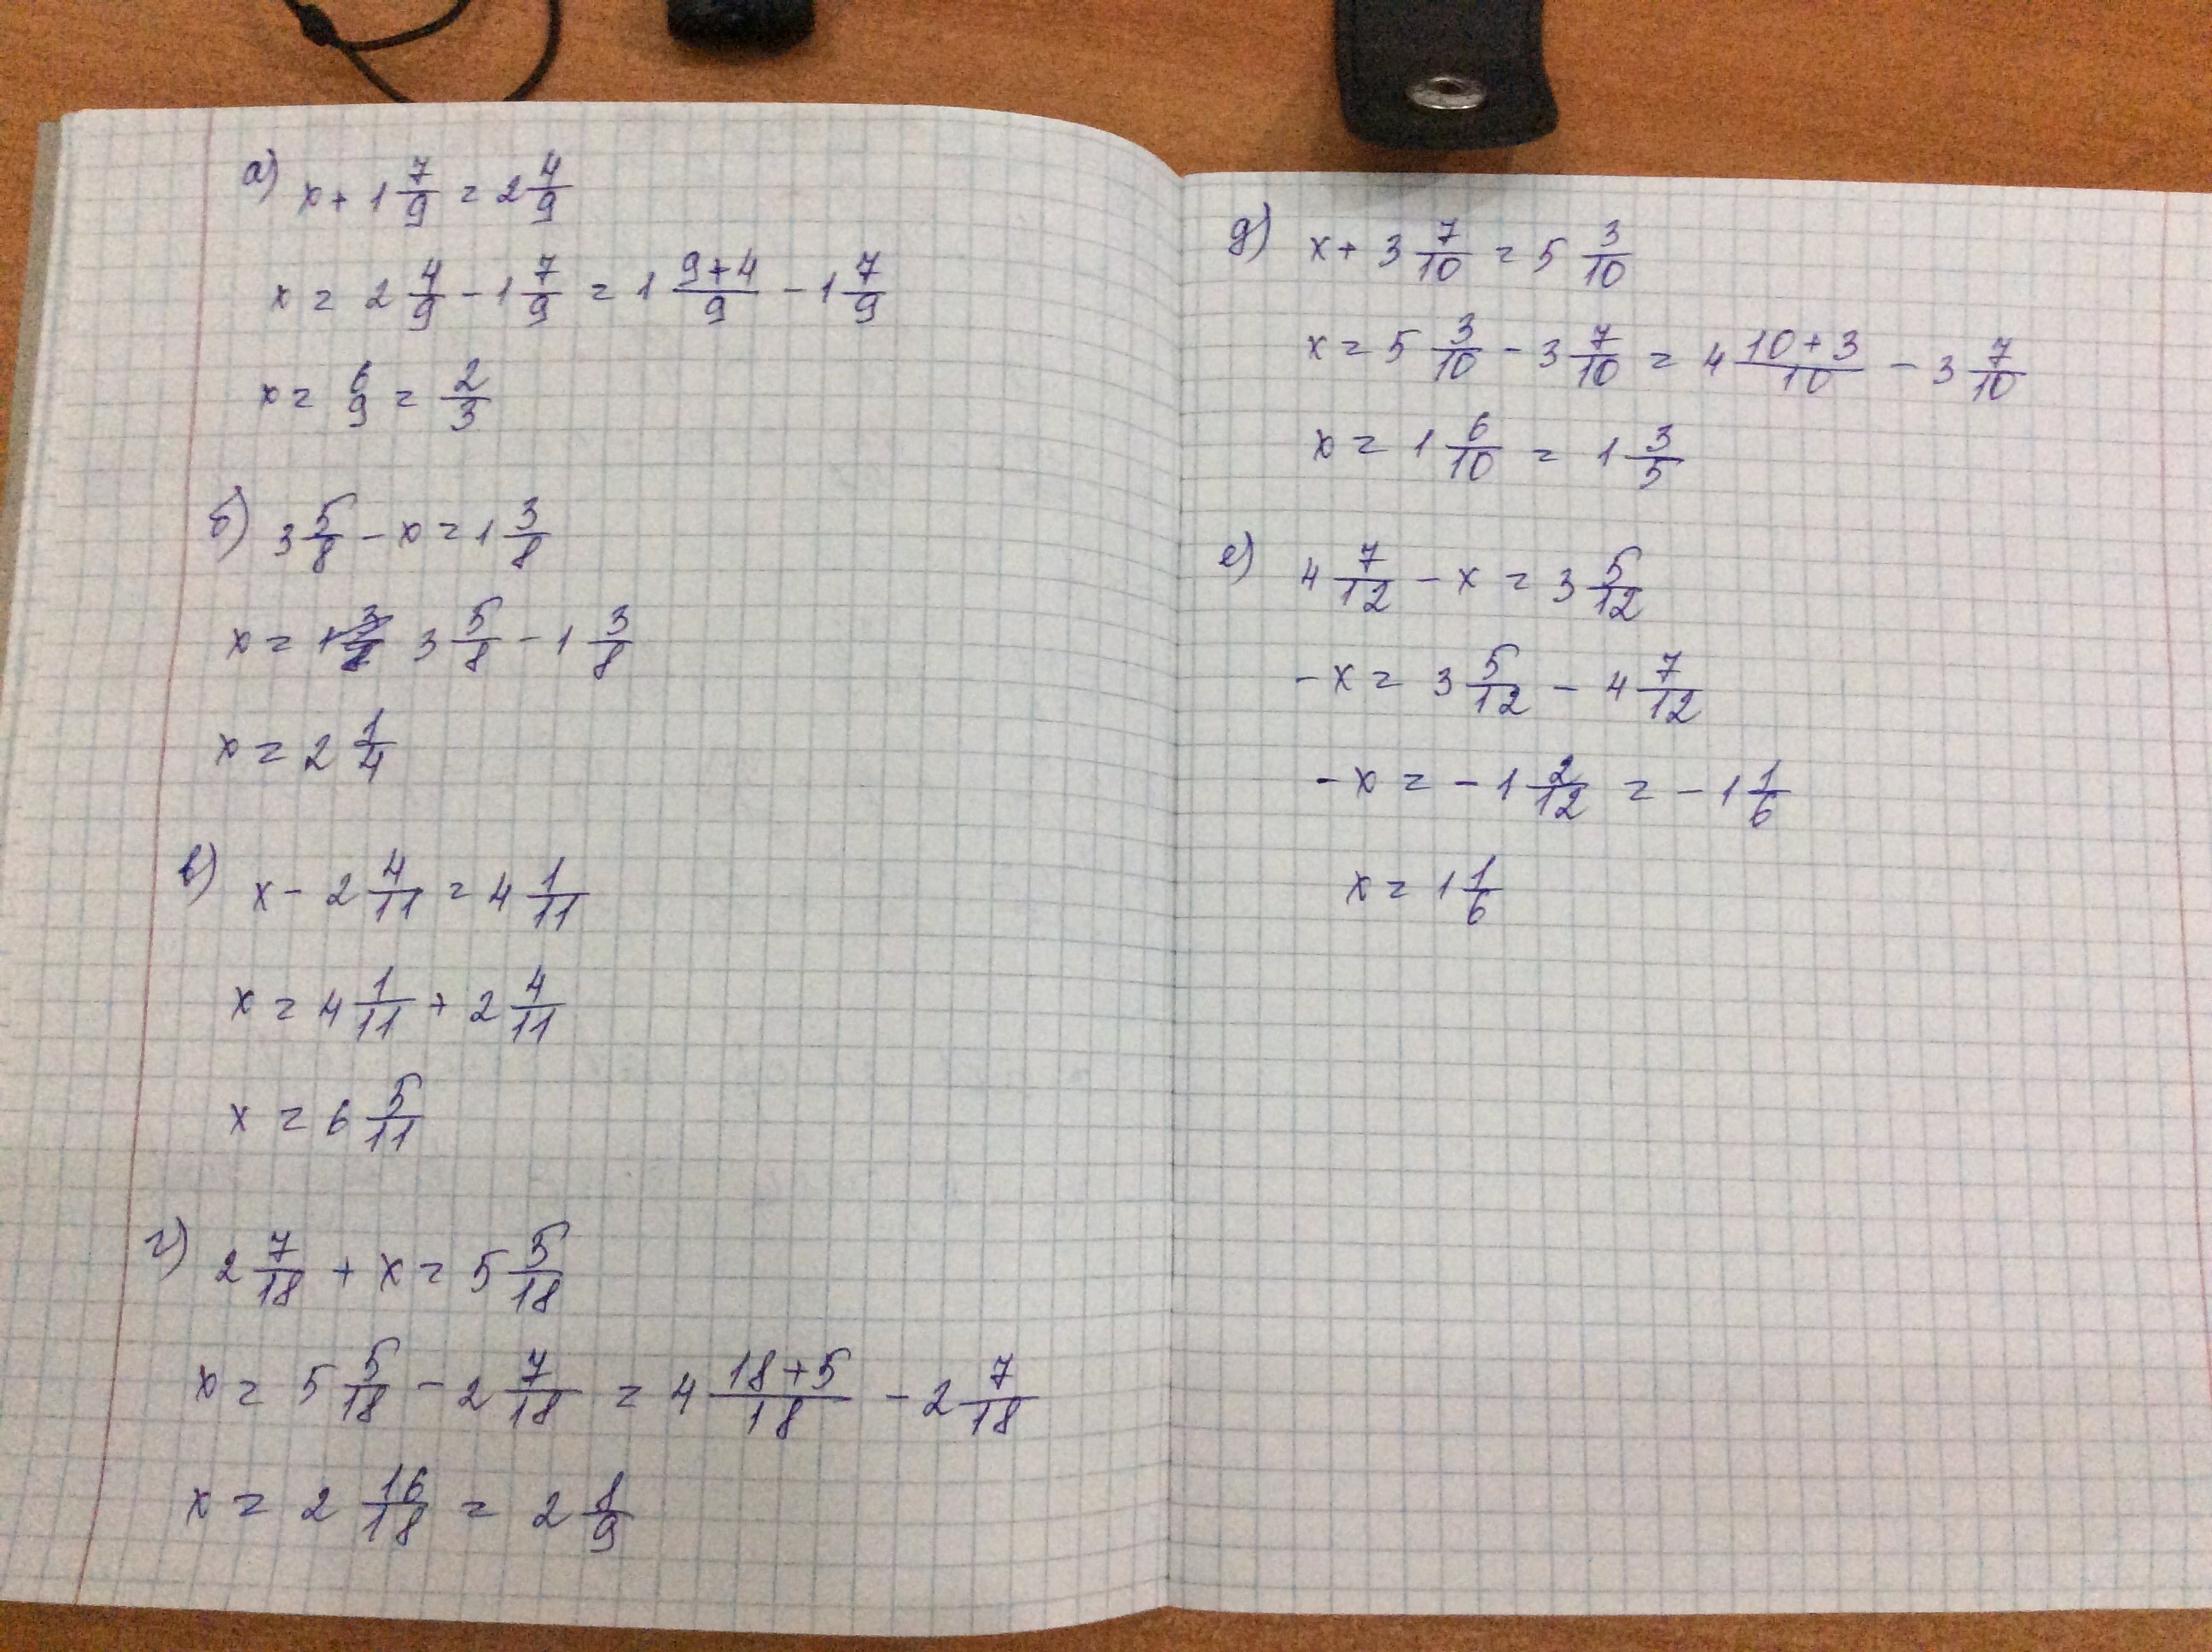 а) x + 1 7/9 = 2 4/9
x = 2 4/9 - 1 7/9 = 1 (9+4)/9 - 1 7/9
x = 6/9 = 2/3
б) 3 5/8 - x = 1 3/8
x = 3 5/8 - 1 3/8
x = 2 1/4
в) x - 2 4/11 = 4 1/11
x = 4 1/11 + 2 4/11
x = 6 5/11
г) 2 7/18 + x = 5 5/18
x = 5 5/18 - 2 7/18 = 4 (18+5)/18 - 2 7/18
x = 2 16/18 = 2 8/9
д) x + 3 7/10 = 5 3/10
x = 5 3/10 - 3 7/10 = 4 (10+3)/10 - 3 7/10
x = 1 6/10 = 1 3/5
е) 4 7/12 - x = 3 5/12
-x = 3 5/12 - 4 7/12
-x = -1 2/12 = -1 1/6
x = 1 1/6